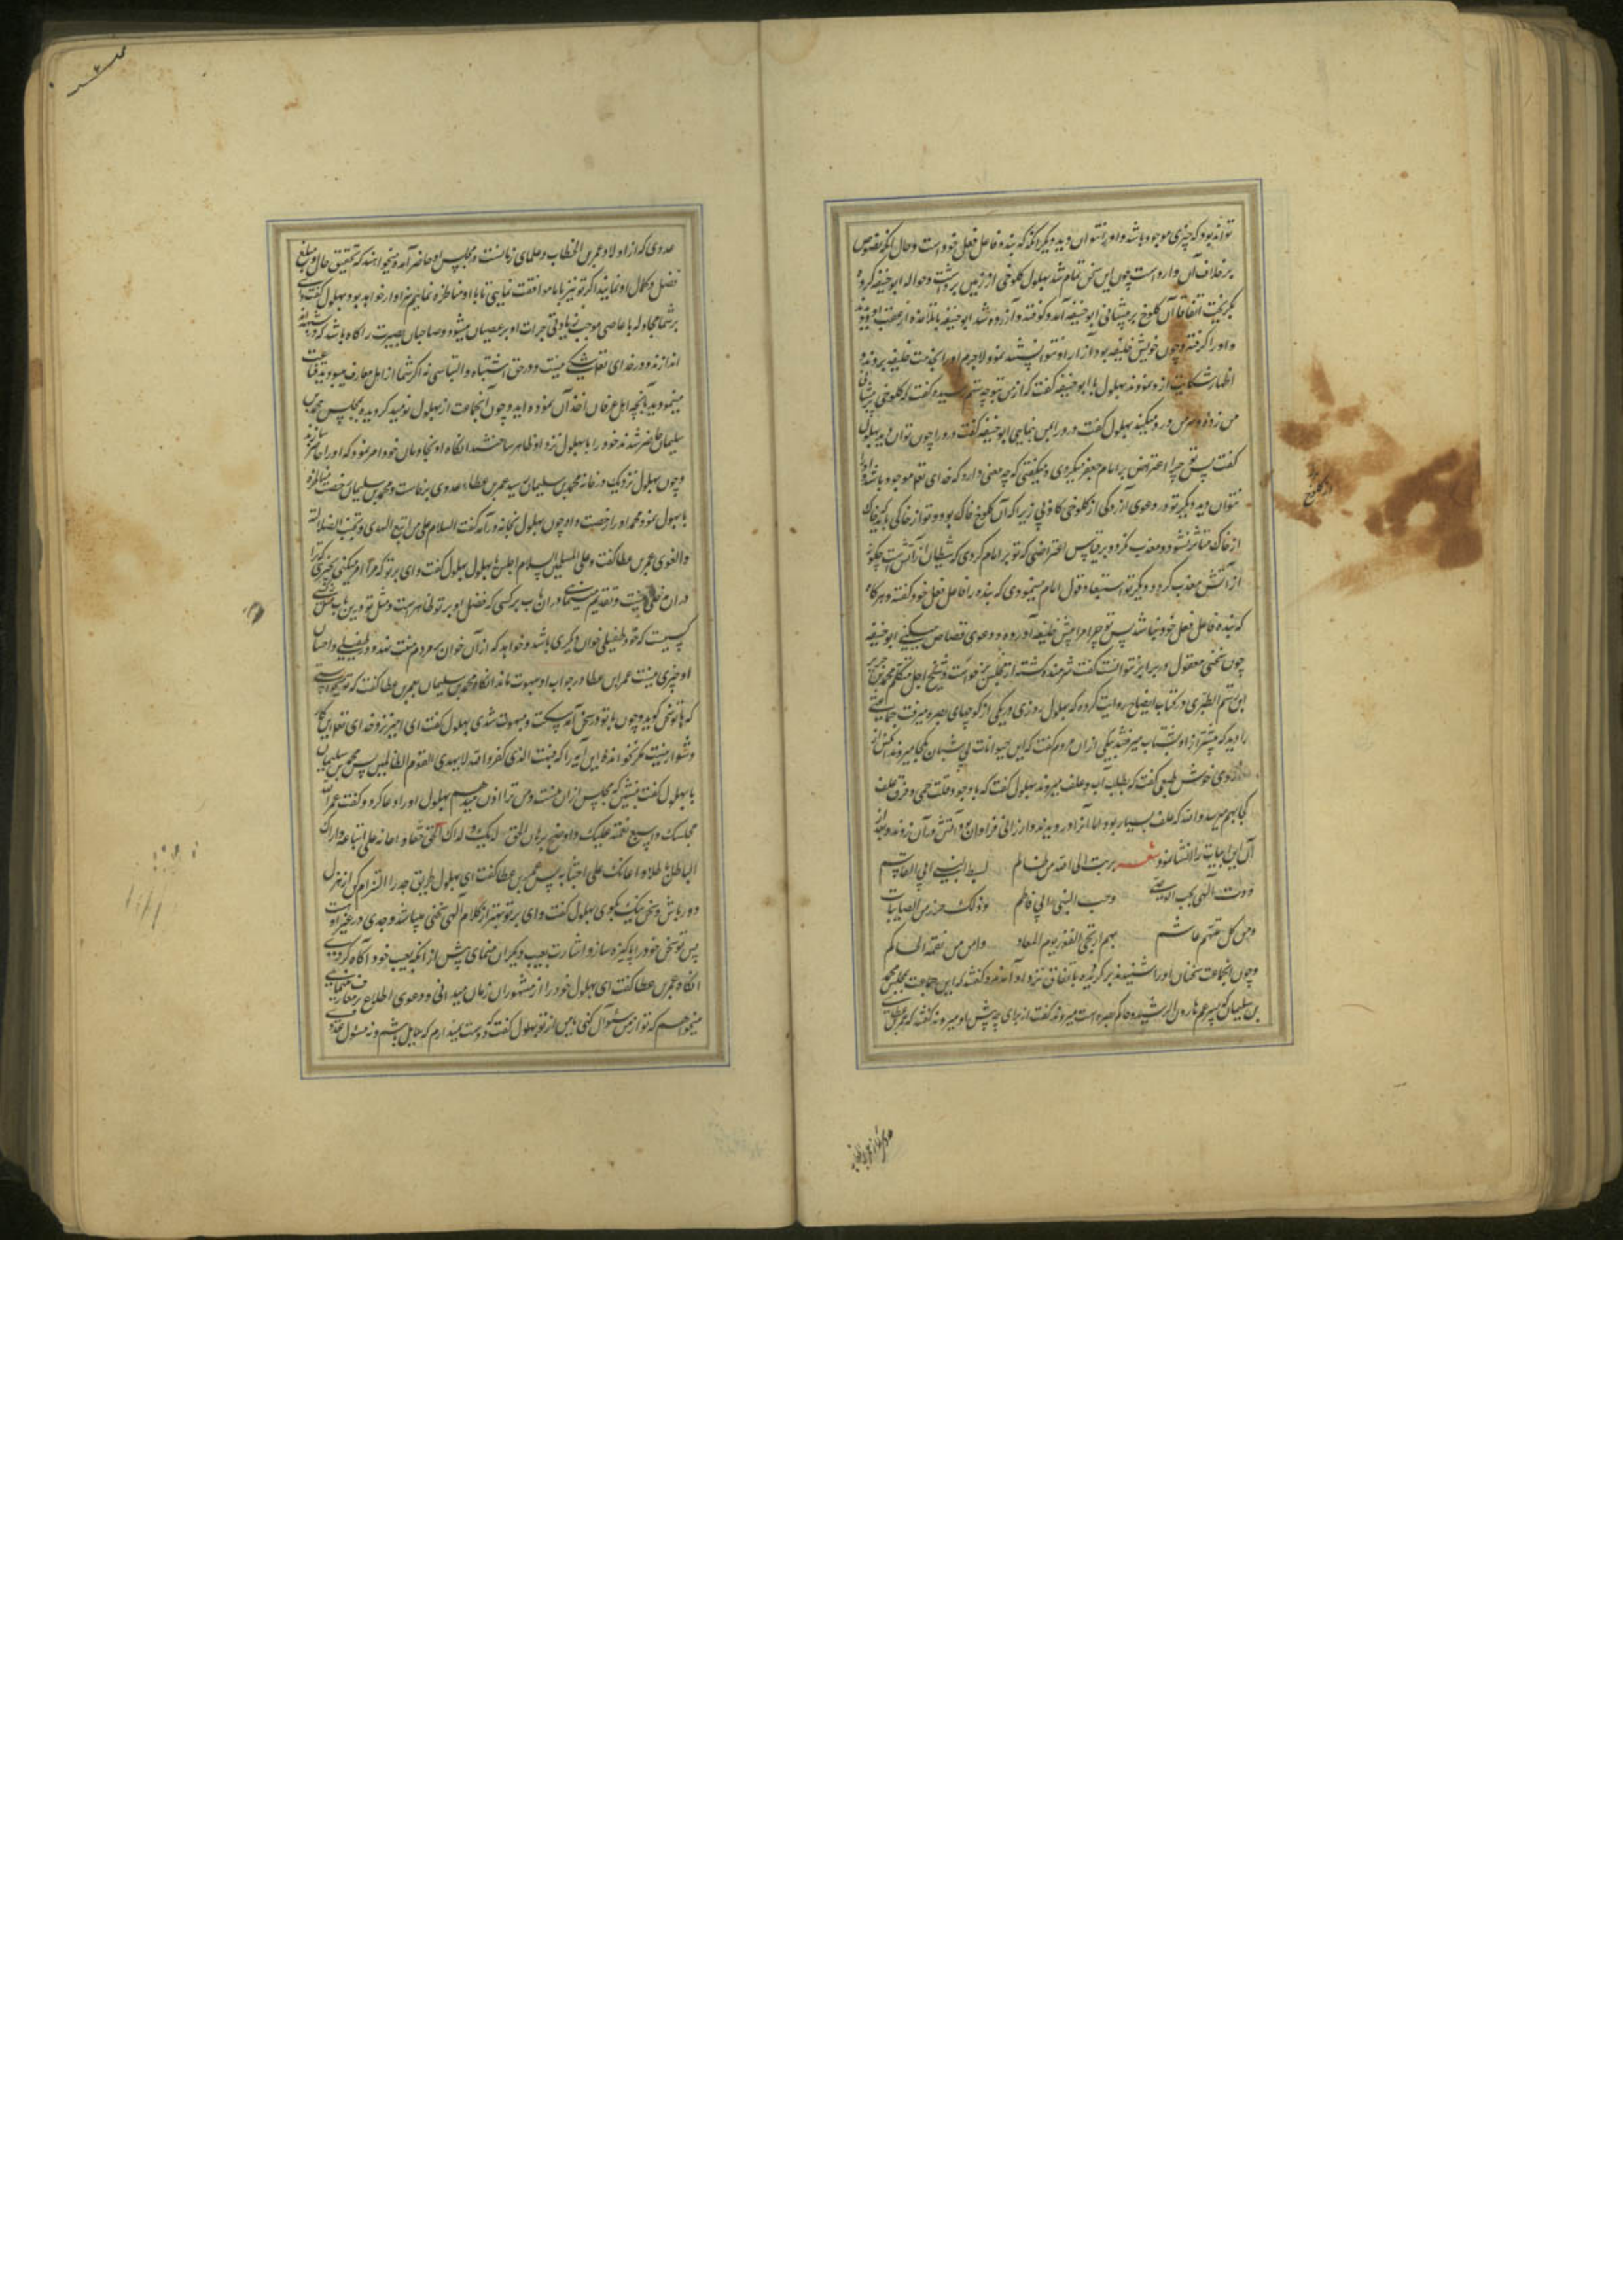 تواند بود که چیزی موجود باشد و او را نتوان دید دیگر آنکه بنده فاعل فعل خود است و حال آنکه نصوص
بر خلاف آن وارد است چون این سخن تمام شد بهلول کلوخی از زمین برداشت و حواله ابو حنیفه کرده
بگریخت اتفاقا آن کلوخ بر پیشانی ابو حنیفه آمد و کوفته و آزرده شد ابو حنیفه با تلامذه از عقب او دویدند
و او را گرفتند و چون خویش خلیفه بود آزار او نتوانستند نمود لاجرم او را بخدمت خلیفه بردند و
اظهار شکایت از و نمودند بهلول با ابو حنیفه گفت که از من بتو چه ستم رسیده گفت که کلوخی بر پیشانی
من زده و سر من درد میکند بهلول گفت درد را بمن بنمایی ابو حنیفه گفت درد را چون توان دید بهلول
گفت پس تو چرا اعتراض بر امام جعفر میکردی و میگفتی که چه معنی دارد که خدای تعالی موجود باشد و او را
نتوان دید و دیگر تو در دعوی آزردگی از کلوخی کاذبی زیرا که آن کلوخ خاک بود و تو از خاکی باید که خاک
از خاک متاثر نشود و معذب نگردد بر قیاس اعتراضی که تو بر امام کردی که شیطان از آتش است چگونه
از آتش معذب گردد و دیگر تو استبعاد قول امام مینمودی که بنده را فاعل فعل خود گفته و هرگاه
که بنده فاعل فعل خود نباشد پس تو چرا مرا پیش خلیفه آورده و دعوی قصاص میکنی ابو حنیفه
چون سخنی معقول در برابر نتوانست گفت شرمنده گشته از مجلس برخواست و شیخ اجل متکلم محمد بن جریر
ابن رستم الطبری در کتاب ایضاح روایت کرده که بهلول روزی در یکی از کوچهای بصره میرفت جماعتی
را دید که پیشتر از او بشتاب میرفتند بیکی از ان مردم گفت که این حیوانات بی شبان بکجا میروند
خوش طبعی گفت که بطلب آب و علف میروند بهلول گفت که با وجود قلت حمی و فرق علف
کجا بهم میرسد والله که علف بسیار بود اما آنرا درویدند و ارزانی فراوان بود آتش در آن زدند و بعد از
آن این ابیات را انشا نمود شعر برئت الی الله من ظالم لسبط النبی ابی القاسم
ودنت الهی بحب الوصی وحب النبی ابی فاطم وذلک حرز من النایبات
ومن کل متهم غاشم بهم ارتجی الفوز یوم المعاد وامن من نقمة الحاکم
چون انجماعت سخنان او را شنیدند برگردیده باتفاق نزد او آمدند و گفتند که این جماعت بمجلس محمد
بن سلیمان که پسر عم هارون الرشید و حاکم بصره است میروند گفت از برای چه پیش او میروند گفتند که عمر بن عطای
عدوی که از اولاد عمر بن الخطاب و علمای زمانست و بمجلس او حاضر آمده میخواهند که تحقیق حال و مبلغ
فضل و کمال او نمایند اگر تو نیز با ما موافقت نمایی تا با او مناظره نمایی سزاوار خواهد بود بهلول گفت وای
بر شما مجادله با عاصی موجب زیادتی جرات او بر عصیان میشود و صاحبان بصیرت را گاه باشد که در شبهه
اندازند و در خدای تعالی شکی نیست و در حق اشتباه و التباسی نه اگر شما از اهل معارف میبودید قناعت
مینمودید بآنچه اهل عرفان اخذ آن نموده اید و چون انجماعت از بهلول نومید گردیده بمجلس محمد بن
سلیمان حاضر شدند خود را با بهلول نزد او ظاهر ساختند انگاه او بخادمان خود امر نمود که او را حاضر سازند
و چون بهلول نزدیک در خانه محمد بن سلیمان رسید عمر بن عطاء عدوی برخاست و محمد بن سلیمان رخصت مناظره
با بهلول نمود محمد او را رخصت داد چون بهلول بخانه درآمد گفت السلام علی من اتبع الهدی و تجنب الضلالة
والغوی عمر بن عطا گفت و علی المسلمین السلام اجلس یا بهلول بهلول گفت وای بر تو که مرا امر میکنی بچیزی که ترا
در آن دخلی نیست و تقدیم مینمایی در ان باب بر کسی که فضل او بر تو ظاهر است و مثل تو درین باب مثل کسی
کسیت که خود طفیلی خوان دیگری باشد و خواهد که از آن خوان بر مردم منت نهد و در طفیلی و احسان
او چیزی نیست عمر ابن عطا در جواب او مبهوت ماند انگاه محمد بن سلیمان بعمر بن عطا گفت که تو میخواستی
که با تو سخن گوید و چون با تو در سخن آمد ساکت و مبهوت شدی بهلول گفت ای امیر نزد خدای تعالی این کار
دشوار نیست مگر نخوانده این آیه را که فبهت الذی کفر والله لا یهدی القوم الظالمین پس محمد بن سلیمان
با بهلول گفت بنشین که مجلس از ان منست و من ترا اذن میدهم بهلول او را دعا کرد و گفت عمر الله
مجلسک واسبغ نعمته علیک واوضح برهان الحق لدیک واراک الحق حقا واعانک علی اتباعه واراک
الباطل باطلا واعانک علی اجتنابه پس عمر بن عطا گفت ای بهلول طریق جد را التزام کن از هزل
دور باش و سخن نیک بگوی بهلول گفت وای بر تو بهتر از کلام الهی سخنی میباشد و جدی در غیر اوست
پس تو سخن خود را پاکیزه ساز و اشارت بعیب دیگران منمای پیش از انکه بعیب خود آگاه گردی
انگاه عمر بن عطا گفت ای بهلول خود را از مشهوران زمان میدانی و دعوی اطلاع بر معارف مینمایی
میخواهم که تو از من سئوال کنی یا من از تو بهلول گفت که دوست نمیدارم که سایل باشم و نه مسئول